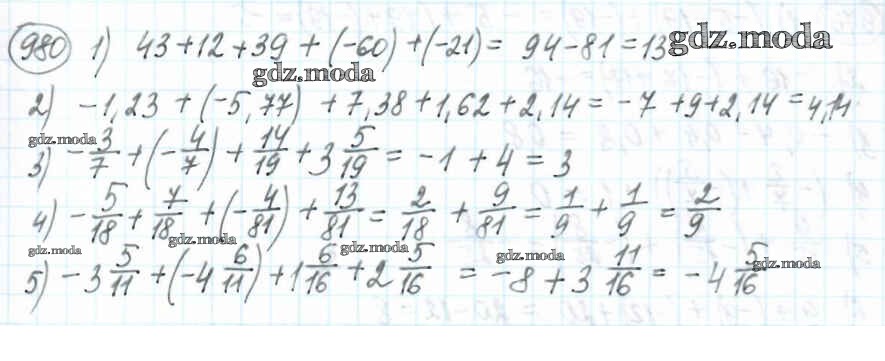 980 1) 43+12+39+(-60)+(-21)= 94-81=13 gdz.moda
gdz.moda
2) -1,23+(-5,77)+7,38+1,62+2,14=-7+9+2,14=4,14
gdz.moda
3) -3/7+(-4/7)+14/19+3 5/19=-1+4=3
4) -5/18+7/18+(-4/81)+13/81=2/18+9/81=1/9+1/9=2/9
gdz.moda gdz.moda gdz.moda gdz.moda gdz.moda
5) -3 5/11+(-4 6/11)+1 6/16+2 5/16=-8+3 11/16=-4 5/16